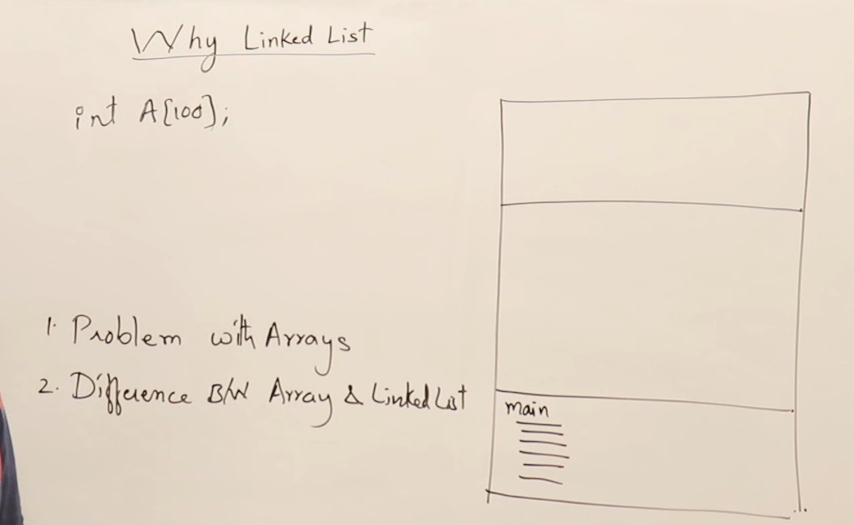 Why Linked List
int A[100];
1. Problem with Arrays
2. Difference B/W Array & Linked List
main